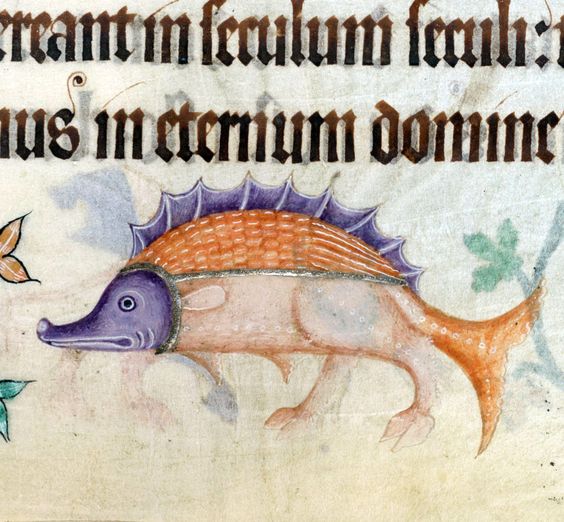 ereant in seculum seculi:
mus in eternum domine